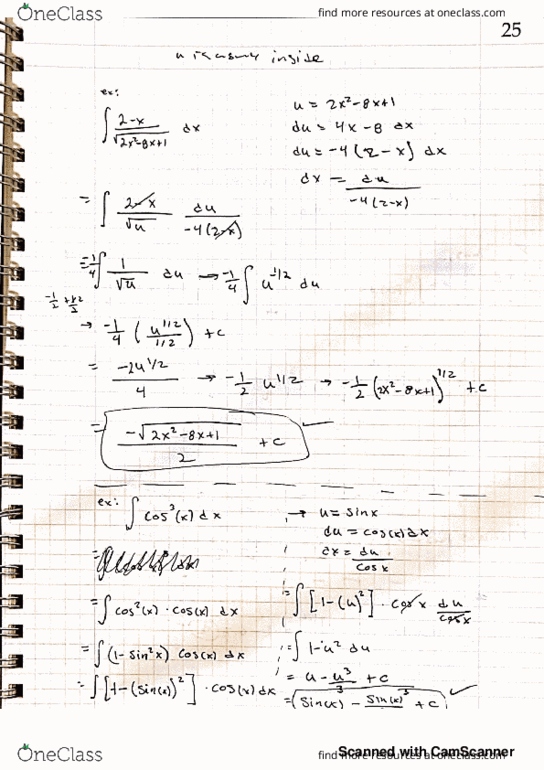 OneClass
find more resources at oneclass.com
25
inside
ex:
∫ 2-x / √2x²-8x+1 dx
u = 2x²-8x+1
du = 4x-8 dx
du = -4(2-x) dx
dx = du / -4(2-x)
= ∫ 2-x / √u du / -4(2-x)
= -1/4 ∫ 1/√u du → -1/4 ∫ u^-1/2 du
-1/2 + 2/2
→ -1/4 (u^1/2 / 1/2) + c
= -2u^1/2 / 4 → -1/2 u^1/2 → -1/2 (2x²-8x+1)^1/2 + c
= -√2x²-8x+1 / 2 + c
ex: ∫ cos³(x) dx
→ u = sinx
du = cos(x) dx
dx = du / cosx
= ∫ cos²(x) · cos(x) dx
= ∫ (1-sin²x) cos(x) dx
= ∫ [1-(sin(x))²] · cos(x) dx
= ∫ [1-(u)²] · cosx du / cosx
= ∫ 1-u² du
= u - u³/3 + c
= (sin(x) - sin(x)³/3 + c)
OneClass
find more resources at oneclass.com
Scanned with CamScanner